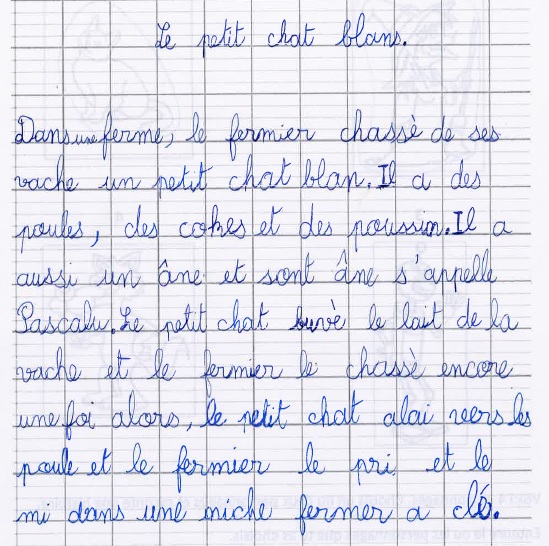 Le petit chat blans.
Dans une ferme, le fermier chassè de ses
vache un petit chat blan. Il a des
poules, des cokes et des poussin. Il a
aussi un âne et sont âne s'appelle
Pascalu. Le petit chat buvè le lait de la
vache et le fermier le chassè encore
une foi alors, le petit chat alai vers les
poule et le fermier le pri et le
mi dans une niche fermer a clé.